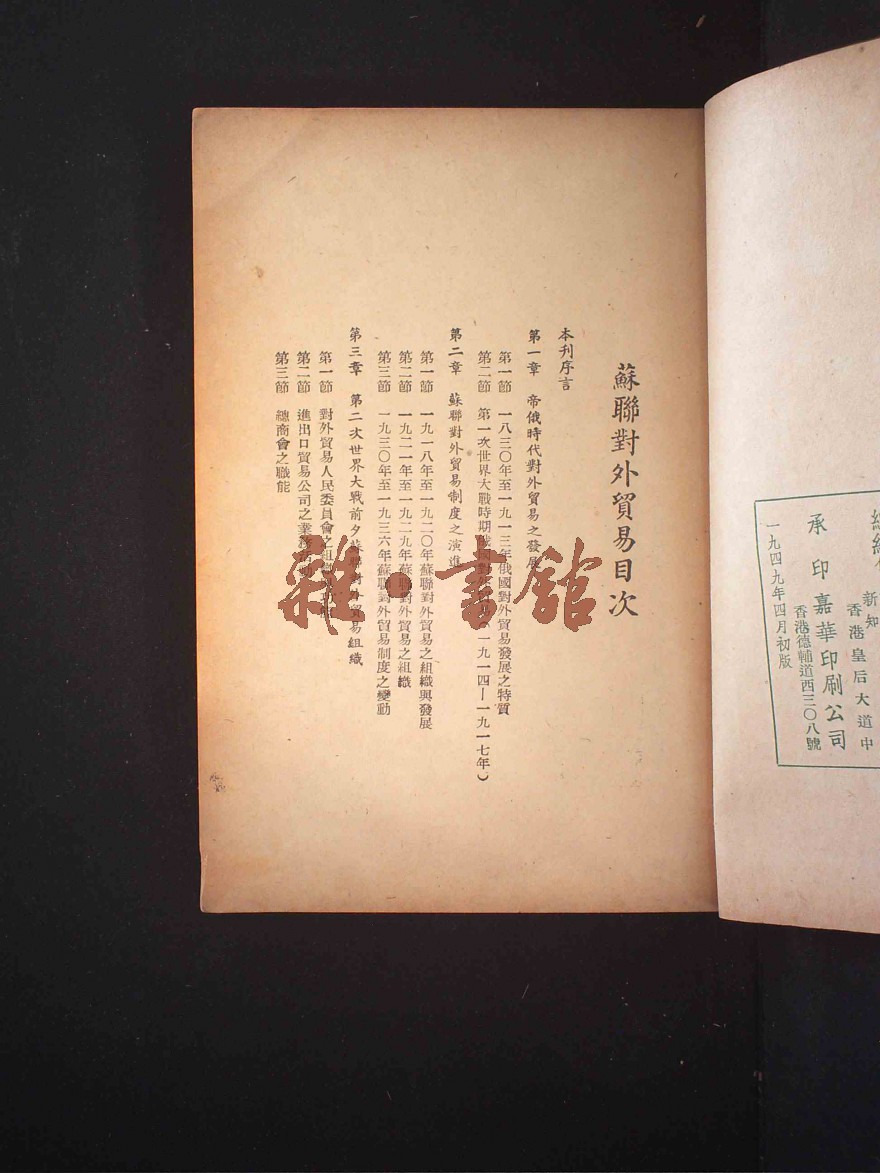 總經
新知
香港皇后大道中
承印嘉華印刷公司
香港德輔道西三〇八號
一九四九年四月初版
蘇聯對外貿易目次
本刊序言
第一章 帝俄時代對外貿易之發展
第一節 一八三〇年至一九一三年俄國對外貿易發展之特質
第二節 第一次世界大戰時期俄國對外貿易(一九一四—一九一七年)
第二章 蘇聯對外貿易制度之演進
第一節 一九一八年至一九二〇年蘇聯對外貿易之組織與發展
第二節 一九二一年至一九二九年蘇聯對外貿易之組織
第三節 一九三〇年至一九三六年蘇聯對外貿易制度之變動
第三章 第二次世界大戰前夕蘇聯對外貿易組織
第一節 對外貿易人民委員會之組織
第二節 進出口貿易公司之業務
第三節 總商會之職能
雜·書館